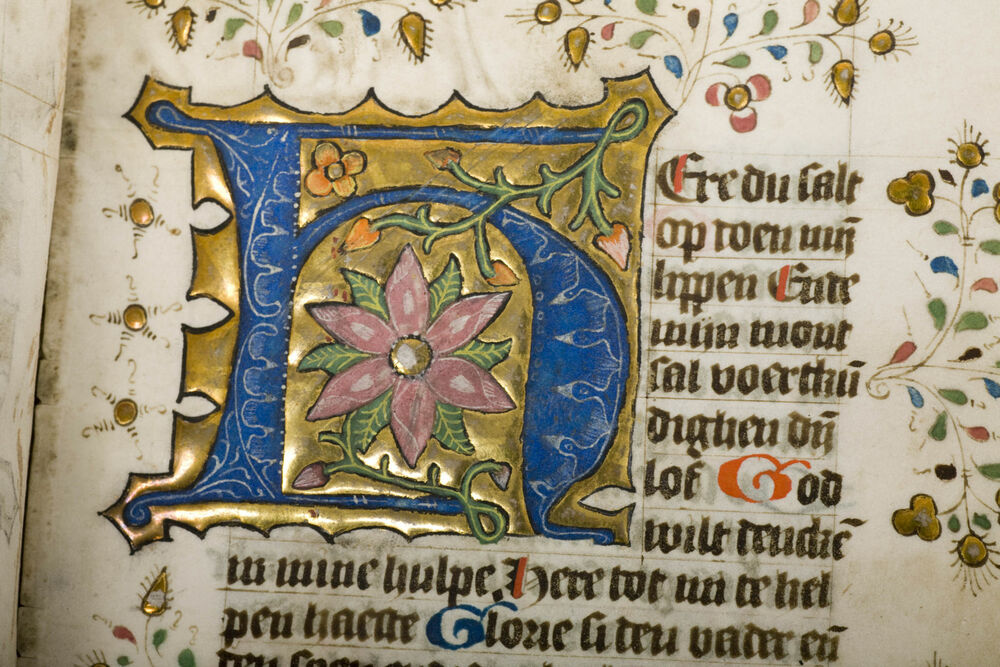 HEre du salt
op doen mīn
lippen Ende
mijn mont
sal voerthū
dighen dīn
lof God
wilt dencken
in mine hulpe. Here tot mi te hel
pen haeste Glorie si den vader eñ
den soen